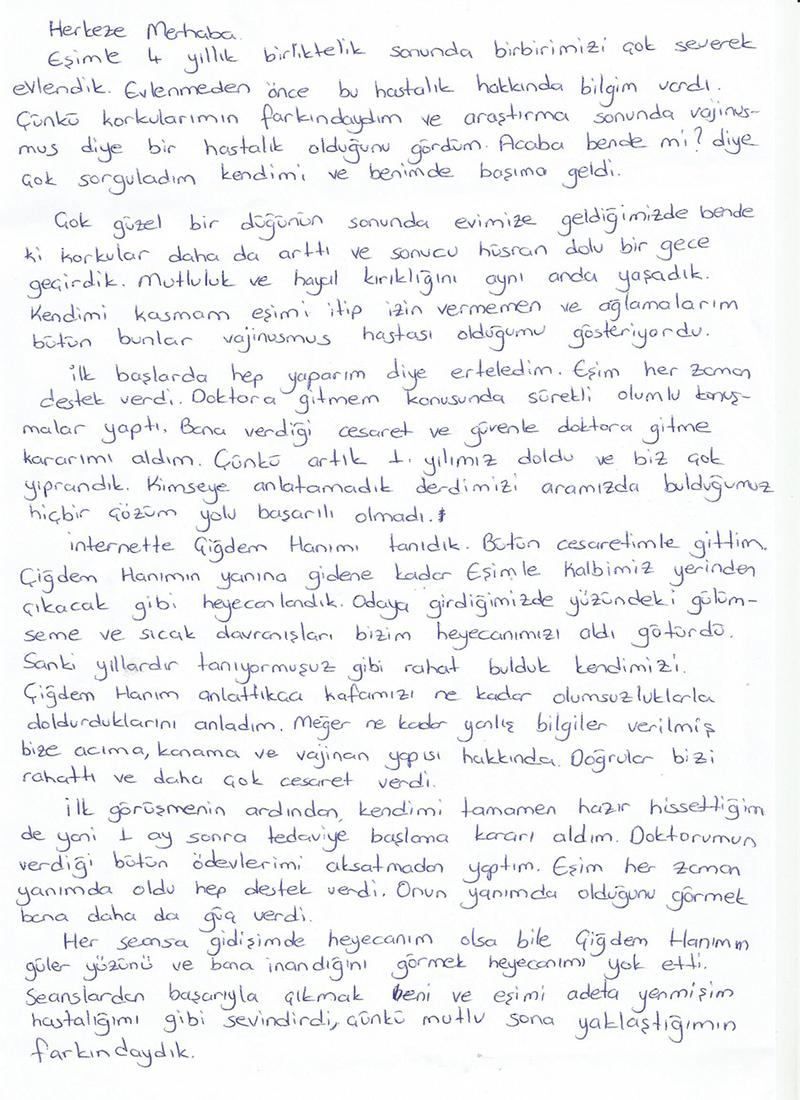 Herkeze Merhaba.
Eşimle 4 yıllık birliktelik sonunda birbirimizi çok severek
evlendik. Evlenmeden önce bu hastalık hakkında bilgim vardı.
Çünkü korkularımın farkındaydım ve araştırma sonunda vajinus-
mus diye bir hastalık olduğunu gördüm. Acaba bende mi? diye
çok sorguladım kendimi ve benimde başıma geldi.
Çok güzel bir düğünün sonunda evimize geldiğimizde bende
ki korkular daha da arttı ve sonucu hüsran dolu bir gece
geçirdik. Mutluluk ve hayal kırıklığını aynı anda yaşadık.
Kendimi kasmam eşimi itip izin vermemem ve ağlamalarım
bütün bunlar vajinusmus hastası olduğumu gösteriyordu.
ilk başlarda hep yaparım diye erteledim. Eşim her zaman
destek verdi. Doktora gitmem konusunda sürekli olumlu konuş-
malar yaptı. Bana verdiği cesaret ve güvenle doktora gitme
kararımı aldım. Çünkü artık 1. yılımız doldu ve biz çok
yıprandık. Kimseye anlatamadık derdimizi aramızda bulduğumuz
hiçbir çözüm yolu başarılı olmadı.
internette Çiğdem Hanımı tanıdık. Bütün cesaretimle gittim.
Çiğdem Hanımın yanına gidene kadar Eşimle Kalbimiz yerinden
çıkacak gibi heyecanlandık. Odaya girdiğimizde yüzündeki gülüm-
seme ve sıcak davranışları bizim heyecanımızı aldı götürdü.
Sanki yıllardır tanıyormuşuz gibi rahat bulduk kendimizi.
Çiğdem Hanım anlattıkca kafamızı ne kadar olumsuzluklarla
doldurduklarını anladım. Meğer ne kadar yanlış bilgiler verilmiş
bize acıma, kanama ve vajinan yapısı hakkında. Doğrular bizi
rahattı ve daha çok cesaret verdi.
İlk görüşmenin ardından, kendimi tamamen hazır hissettiğim
de yani 1 ay sonra tedaviye başlama kararı aldım. Doktorumun
verdiği bütün ödevlerimi aksatmadan yaptım. Eşim her zaman
yanımda oldu hep destek verdi. Onun yanımda olduğunu görmek
bana daha da güç verdi.
Her seansa gidişimde heyecanım olsa bile Çiğdem Hanımın
güler yüzünü ve bana inandığını görmek heyecanımı yok etti.
Seanslardan başarıyla çıkmak beni ve eşimi adeta yenmişim
hastalığımı gibi sevindirdi, çünkü mutlu sona yaklaştığımın
farkındaydık.